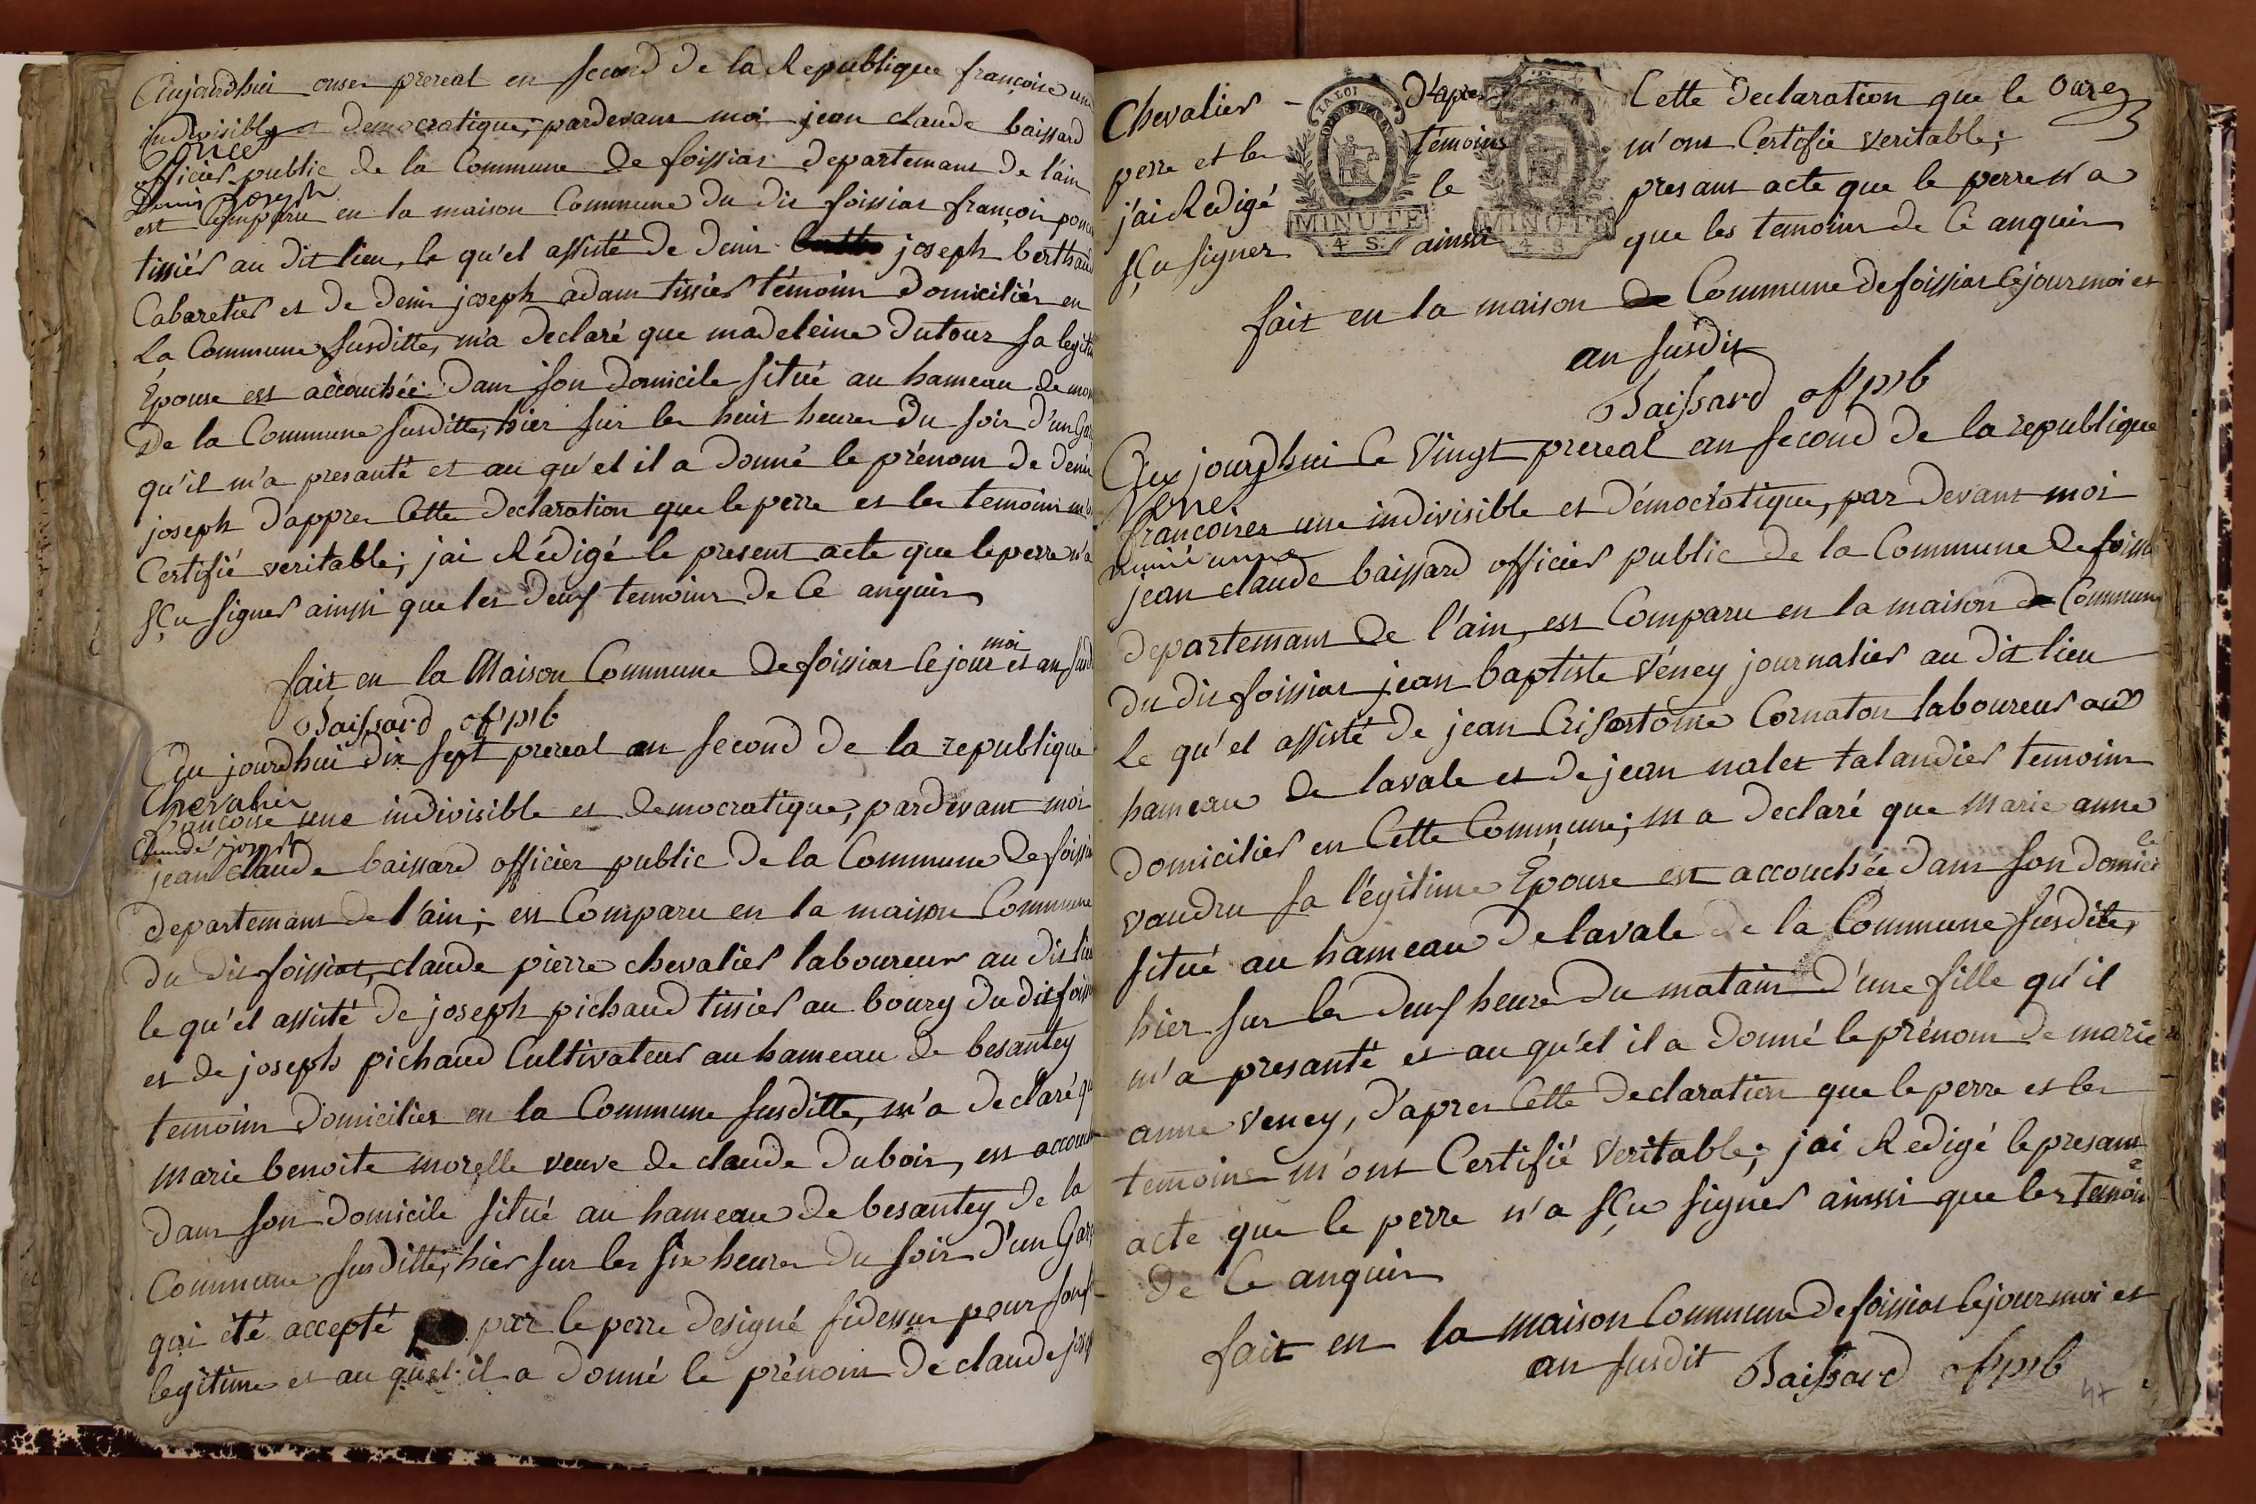 Aujourdhui onse prereal en second de la Republique françoise une
indivisible et democratique, pardevant moi jean claude baissard
Poncet
officier public de la Commune de foissiat departemant de l'ain
Denis joseph
est Comparu en la maison Commune du dit foissiat françois ponce
tissier au dit lieu, le qu'el assisté de denis joseph berthaud
Cabaretier et de denis joseph adam tissier témoins domiciliés en
la Commune susditte, m'a declaré que madeleine dutour sa legiti
Epouse est accouchée dans son domicile situé au hameau de mon
De la Commune susditte, hier sur les huit heures du soir d'un Gar
qu'il m'a presanté et au qu'el il a donné le prénom de denis
joseph d'appres Cette declaration que le perre et les temoins m'o
Certifié veritable; jai Rédigé le present acte que le perre n'a
sçu signer ainssi que les deuf temoins de Ce anquis
fait en la Maison Commune de foissiat le jour moi et an susd
Baissard off pub
Du jourdhui dix sept prereal an second de la republique
Chevalier
françoise une indivisible et democratique, pardevant moi
Claude joseph
jean Claude baissard officier public de la Commune de foissi
departemant de l'ain; est Comparu en la maison Commune
du dit foissiat, claude pierre chevalier laboureur au dit lieu
le qu'el assisté de joseph pichaud tissier au bourg du dit foiss
et de joseph pichaud Cultivateur au hameau de besantey
temoins domiciliés en la Commune susditte, m'a declaré qu
marie benoite morelle veuve de claude dubois, est accouch
dans son domicile situé au hameau de besantey de la
Commune susditte, hier sur les six heures du soir d'un Gar
qui été accepté par le perre designé sidessus pour son f
legitime et au quel il a donné le prénom de claude jose
Chevalier - d'apres Cette declaration que le
perre et les témoins m'ont Certifié veritable;
j'ai Redigé le presant acte que le perre n'a
sçu signer ainssi que les temoins de Ce anquis
LA LOI
MINUTE
4 S.
MINUTE
4 S.
fait en la maison Commune de foissiat le jour moi et
an susdit
Baissard off pub
Du jourdhui le vingt prereal an second de la republique
Veney
françoises une indivisible et démocratique, par devant moi
marie anne
jean claude baissard officier public de la Commune de foissi
departemant de l'ain, est Comparu en la maison Commune
du dit foissiat jean baptiste véney journalier au dit lieu
le qu'el assisté de jean Crisostome Cornaton laboureur au
hameau de lavale et de jean nalet talandier temoins
domiciliés en Cette Commune; m'a declaré que marie anne
vaudru sa légitime Epouse est accouchée dans son domici
le
situé au hameau de lavale de la Commune susdite,
hier sur les deuf heure du matain d'une fille qu'il
m'a presanté et au qu'el il a donné le prénom de marie
anne veney, d'apres Cette declaration que le perre et les
temoins m'ont Certifié veritable; jai Redigé le presant
acte que le perre n'a sçu signer ainssi que les temoin
de Ce anquis
fait en la maison Commune de foissiat le jour moi et
an susdit Baissard off pub
47